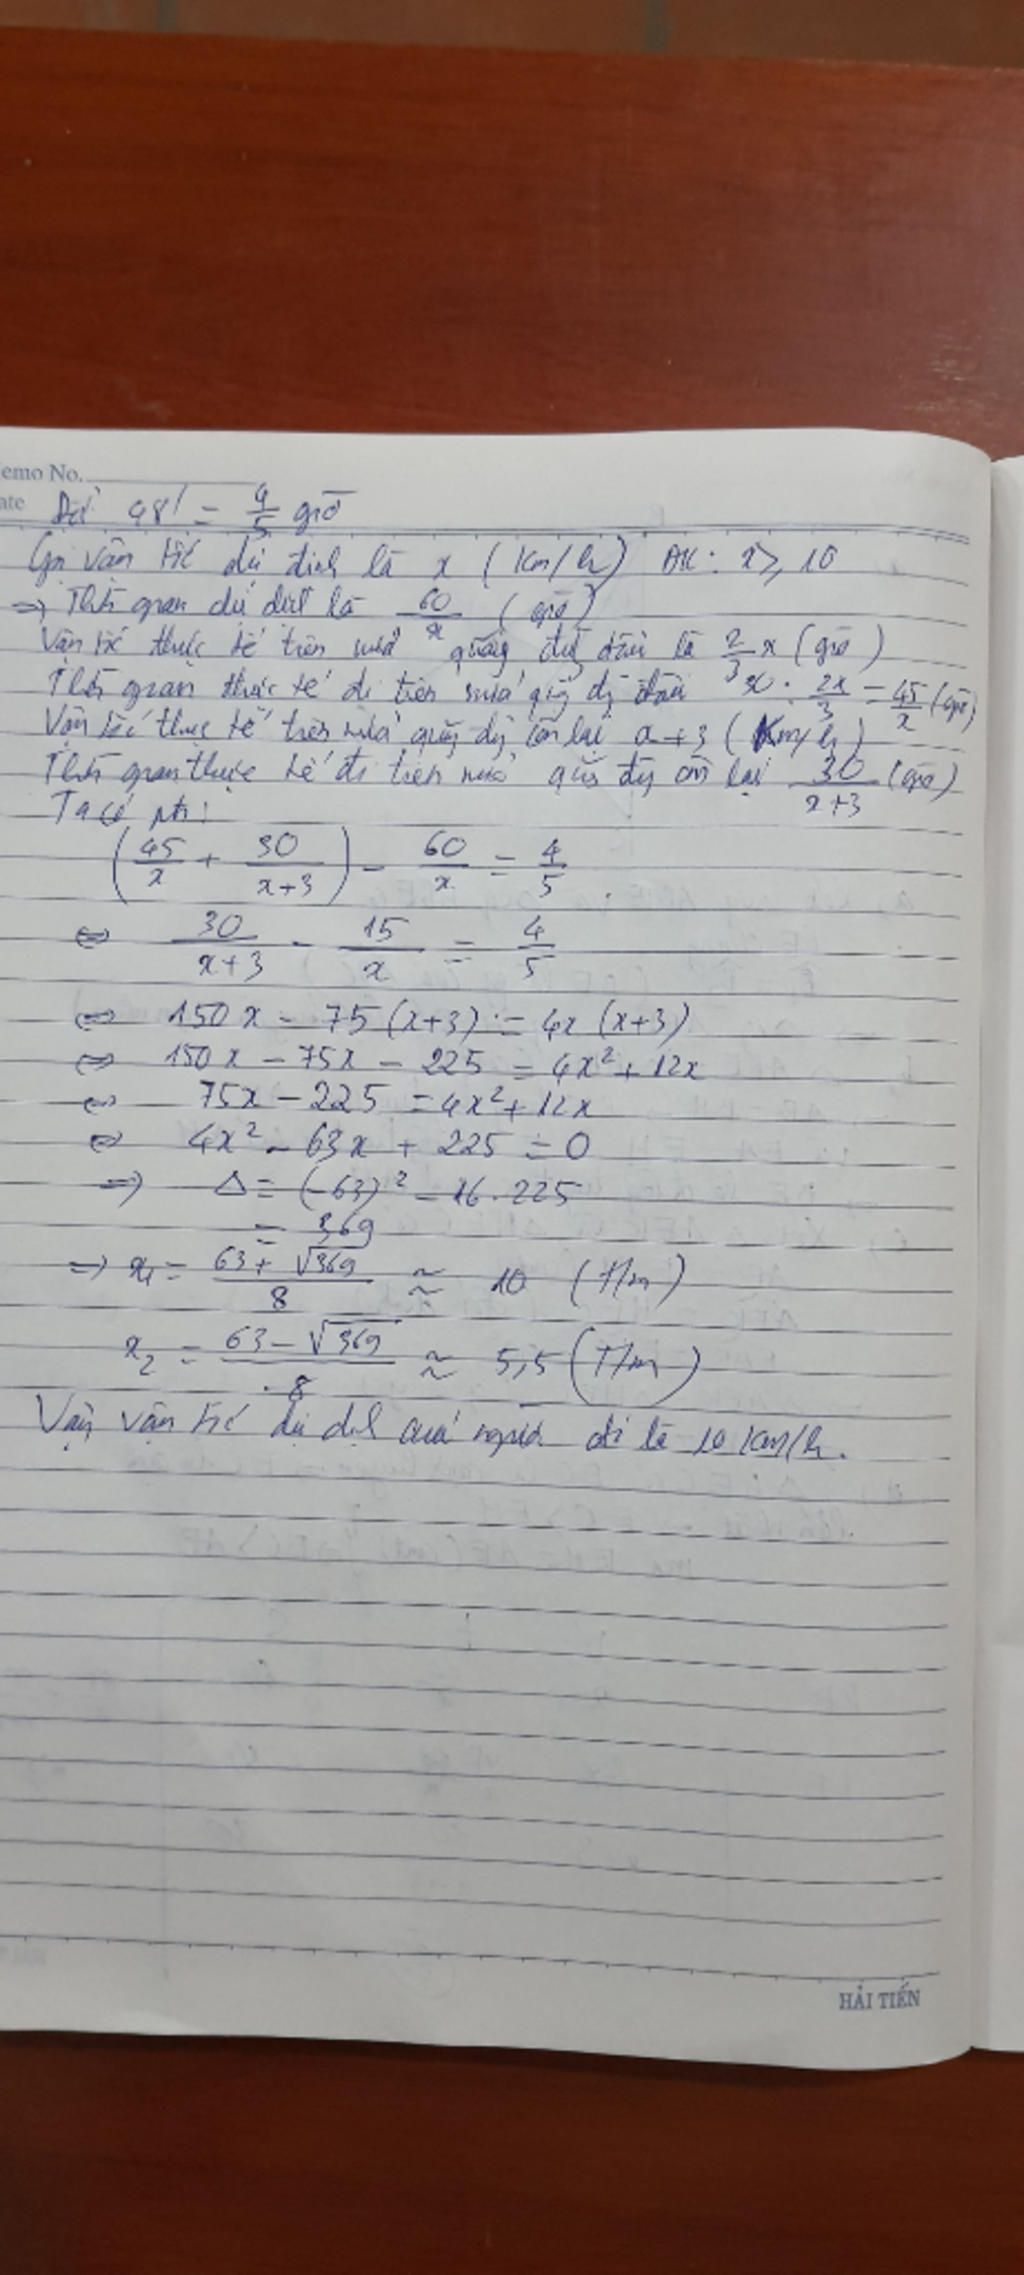 emo No.
ate Đổi 48' = 4/5 giờ
Gọi vận tốc dự định là x (Km/h) ĐK: x ⩾ 10
=> Thời gian dự định là 60/x (giờ)
Vận tốc thực tế trên nửa quãng đg đầu là 2/3 x (giờ)
Thời gian thực tế đi trên nửa qũg đg đầu 30 : 2x/3 = 45/x (giờ)
Vận tốc thực tế trên nửa quãg đg còn lại x+3 (Km/h)
Thời gian thực tế đi trên nửa quã đg còn lại 30/(x+3) (giờ)
Ta có pt:
(45/x + 30/(x+3)) - 60/x = 4/5
⇔ 30/(x+3) - 15/x = 4/5
⇔ 150x - 75(x+3) = 4x(x+3)
⇔ 150x - 75x - 225 = 4x² + 12x
⇔ 75x - 225 = 4x² + 12x
⇔ 4x² - 63x + 225 = 0
=> Δ = (-63)² - 16.225
= 369
=> x₁ = (63 + √369)/8 ≈ 10 (T/m)
x₂ = (63 - √369)/8 ≈ 5,5 (T/m)
Vậy vận tốc dự định của người đi là 10 Km/h.
HẢI TIẾN